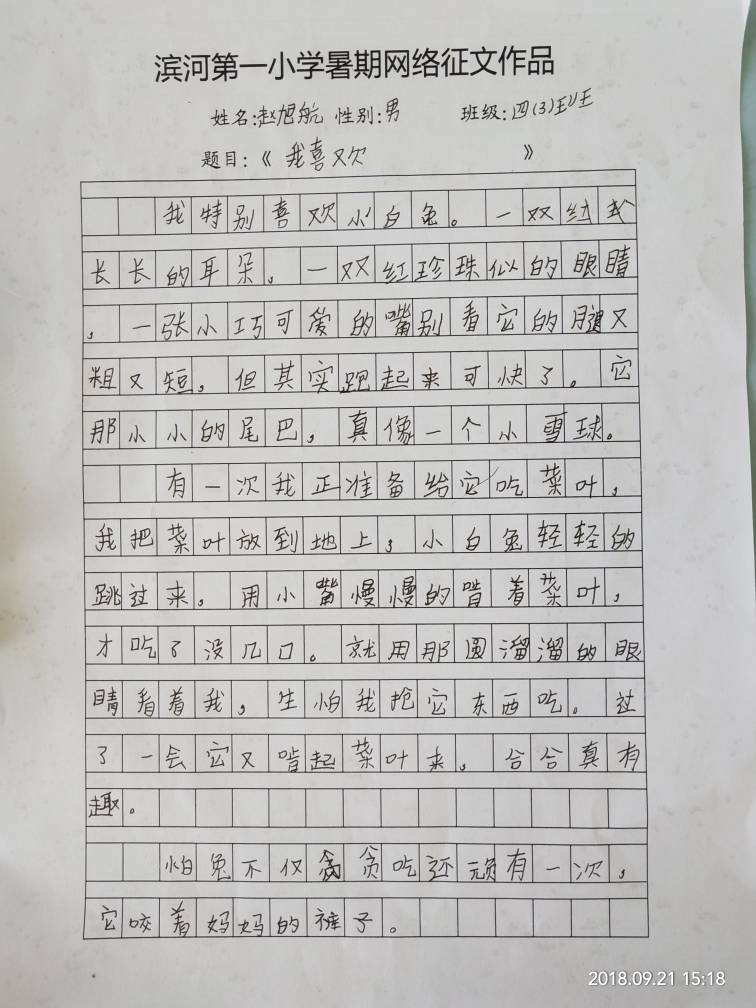 滨河第一小学暑期网络征文作品
姓名:赵旭航 性别:男 班级:四(3)班
题目:《 我喜欢 》
我特别喜欢小白兔。一双红
长长的耳朵,一双红珍珠似的眼睛
,一张小巧可爱的嘴别看它的腿又
粗又短,但其实跑起来可快了。它
那小小的尾巴,真像一个小雪球。
有一次我正准备给它吃菜叶,
我把菜叶放到地上,小白兔轻轻的
跳过来,用小嘴慢慢的啃着菜叶,
才吃了没几口。就用那圆溜溜的眼
睛看着我,生怕我抢它东西吃。过
了一会它又啃起菜叶来,合合真有
趣。
怕兔不仅贪贪吃还顽有一次,
它咬着妈妈的裤子。
2018.09.21 15:18